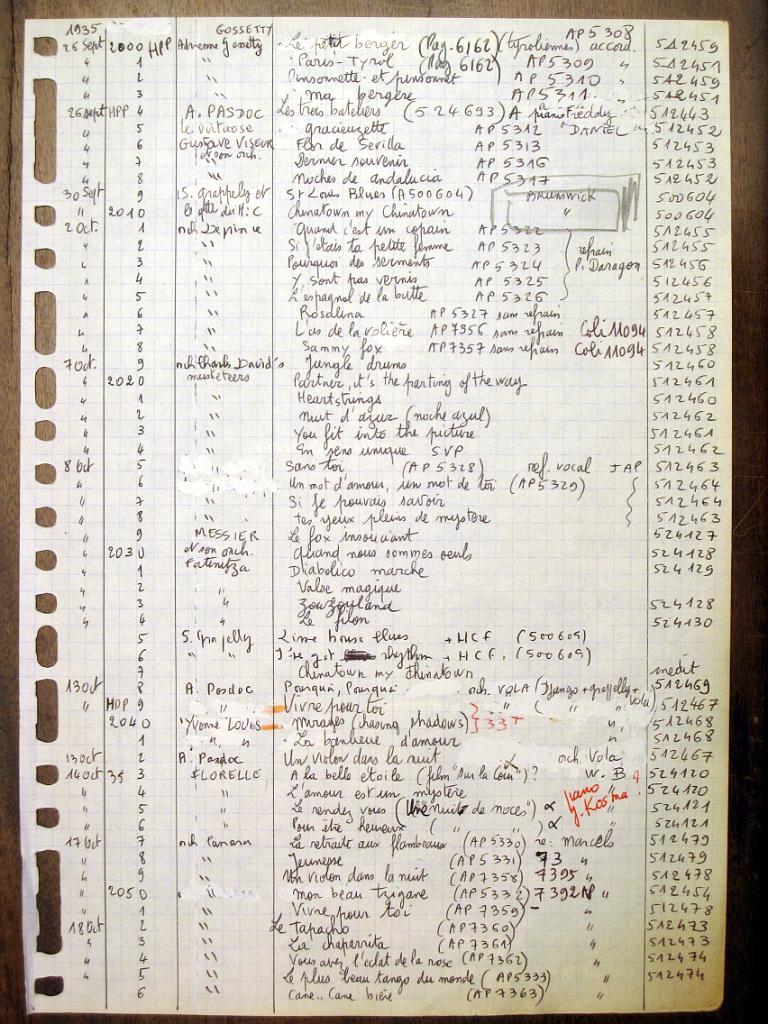 1935 GOSSETTY AP 5308
26 Sept 2000 HPP Adrienne Gossetty Le petit berger (Pag. 6162) (tyroliennes) accord. 512459
" 1 " Paris-Tyrol (Pag 6162) AP 5309 " 512451
" 2 " Pinsonnette et pinsonnet AP 5310 " 512459
" 3 " ma bergère AP 5311 " 512451
26 sept HPP 4 A. PASDOC Les trois bateliers (524693) A a piano Freddy 512443
" 5 le virtuose gracieuzette AP 5312 " DANIEL 512452
" 6 Gustave VISEUR Flor de Sevilla AP 5313 512453
" 7 et son orch. Dernier souvenir AP 5316 512453
" 8 " Noches de andalucia AP 5317 512452
30 Sept 9 S. Grappelly et St Louis Blues (A500604) Brunswick 500604
" 2010 le qtte du H.C Chinatown my Chinatown " 500604
2 Oct. 1 orch Lepinne Quand c'est un copain AP 5322 512455
" 2 " Si j'étais ta petite femme AP 5323 refrain 512455
" 3 " Pourquoi des serments AP 5324 P. Daragon 512456
" 4 " Y sont pas vernis AP 5325 512456
" 5 " L'espagnol de la butte AP 5326 512457
" 6 " Rosalina AP 5327 sans refrain 512457
" 7 " L'as de la volière AP 7356 sans refrain Coli 11094 512458
" 8 " Sammy fox AP 7357 sans refrain Coli 11094 512458
7 Oct. 9 orch Charls David's Jungle drums 512460
" 2020 musketeers Partner, it's the parting of the way 512461
" 1 " Heartstrings 512460
" 2 " Nuit d'azur (noche azul) 512462
" 3 " You fit into the picture 512461
" 4 " En sens unique SVP 512462
8 Oct 5 " Sans toi (AP 5328) ref. vocal JAP 512463
" 6 " Un mot d'amour, un mot de toi (AP 5329) 512464
" 7 " Si je pouvais savoir 512464
" 8 " tes yeux pleins de mystère 512463
" 9 MESSIER Le fox insouciant 524127
" 2030 et son orch. Quand nous sommes seuls 524128
" 1 Fatinitza Diabolico marche 524129
" 2 " Valse magique
" 3 " Zouzouland 524128
" 4 " Le filon 524130
5 S. Grapelly Lime house blues + HCF (500609)
6 " " I've got rhythm + HCF. (500609)
7 Chinatown my Chinatown inédit
13 Oct 8 A. Pasdoc Pourquoi, Pourquoi orch. VOLA (Django + grappelly + Vola) 512469
" HPP 9 " Vivre pour toi " ( " " 512467
2040 Yvonne LOUIS mirages (chasing shadows) 33T " 512468
1 " " La bonheur d'amour " 512468
13 Oct 2 A. Pasdoc Un violon dans la nuit orch. Vola 512467
14 Oct 35 3 FLORELLE A la belle étoile (film "Sur la Loin")? W. B ? 524120
" 4 " L'amour est un mystère piano " 524120
" 5 " Le rendez vous (Une nuit de noces") α J. Kosma 524121
" 6 " Pour être heureux ( " " ) α 524121
17 Oct 7 orch Panara La retraite aux flambeaux (AP 5330) re: marcels 512479
" 8 " Jeunesse (AP 5331) 73 " 512479
" 9 " Un violon dans la nuit (AP 7358) 7395 " 512478
" 2050 " mon beau tzigane (AP 5332) 7392 " 512454
" 1 " Vivre pour toi (AP 7359) - " 512478
18 Oct 2 " Le Tapacho (AP 7360) " 512473
" 3 " La chaparrita (AP 7361) " 512473
" 4 " Vous avez l'éclat de la rose (AP 7362) " 512474
" 5 " Le plus beau tango du monde (AP 5333) 512474
6 " Cane.. Cane bière (AP 7363) "